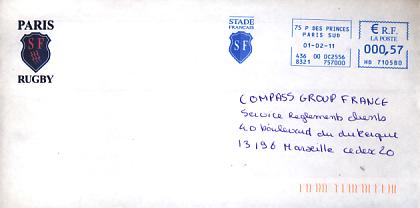 PARIS
SF
RUGBY
STADE
FRANCAIS
SF
75 P DES PRINCES
PARIS SUD
01-02-11
436 00 0C2556
8321 757000
€ R.F.
LA POSTE
000,57
HD 710580
COMPASS GROUP FRANCE
Service Reglements clients
40 boulevard du dukerque
13196 Marseille cedex 20